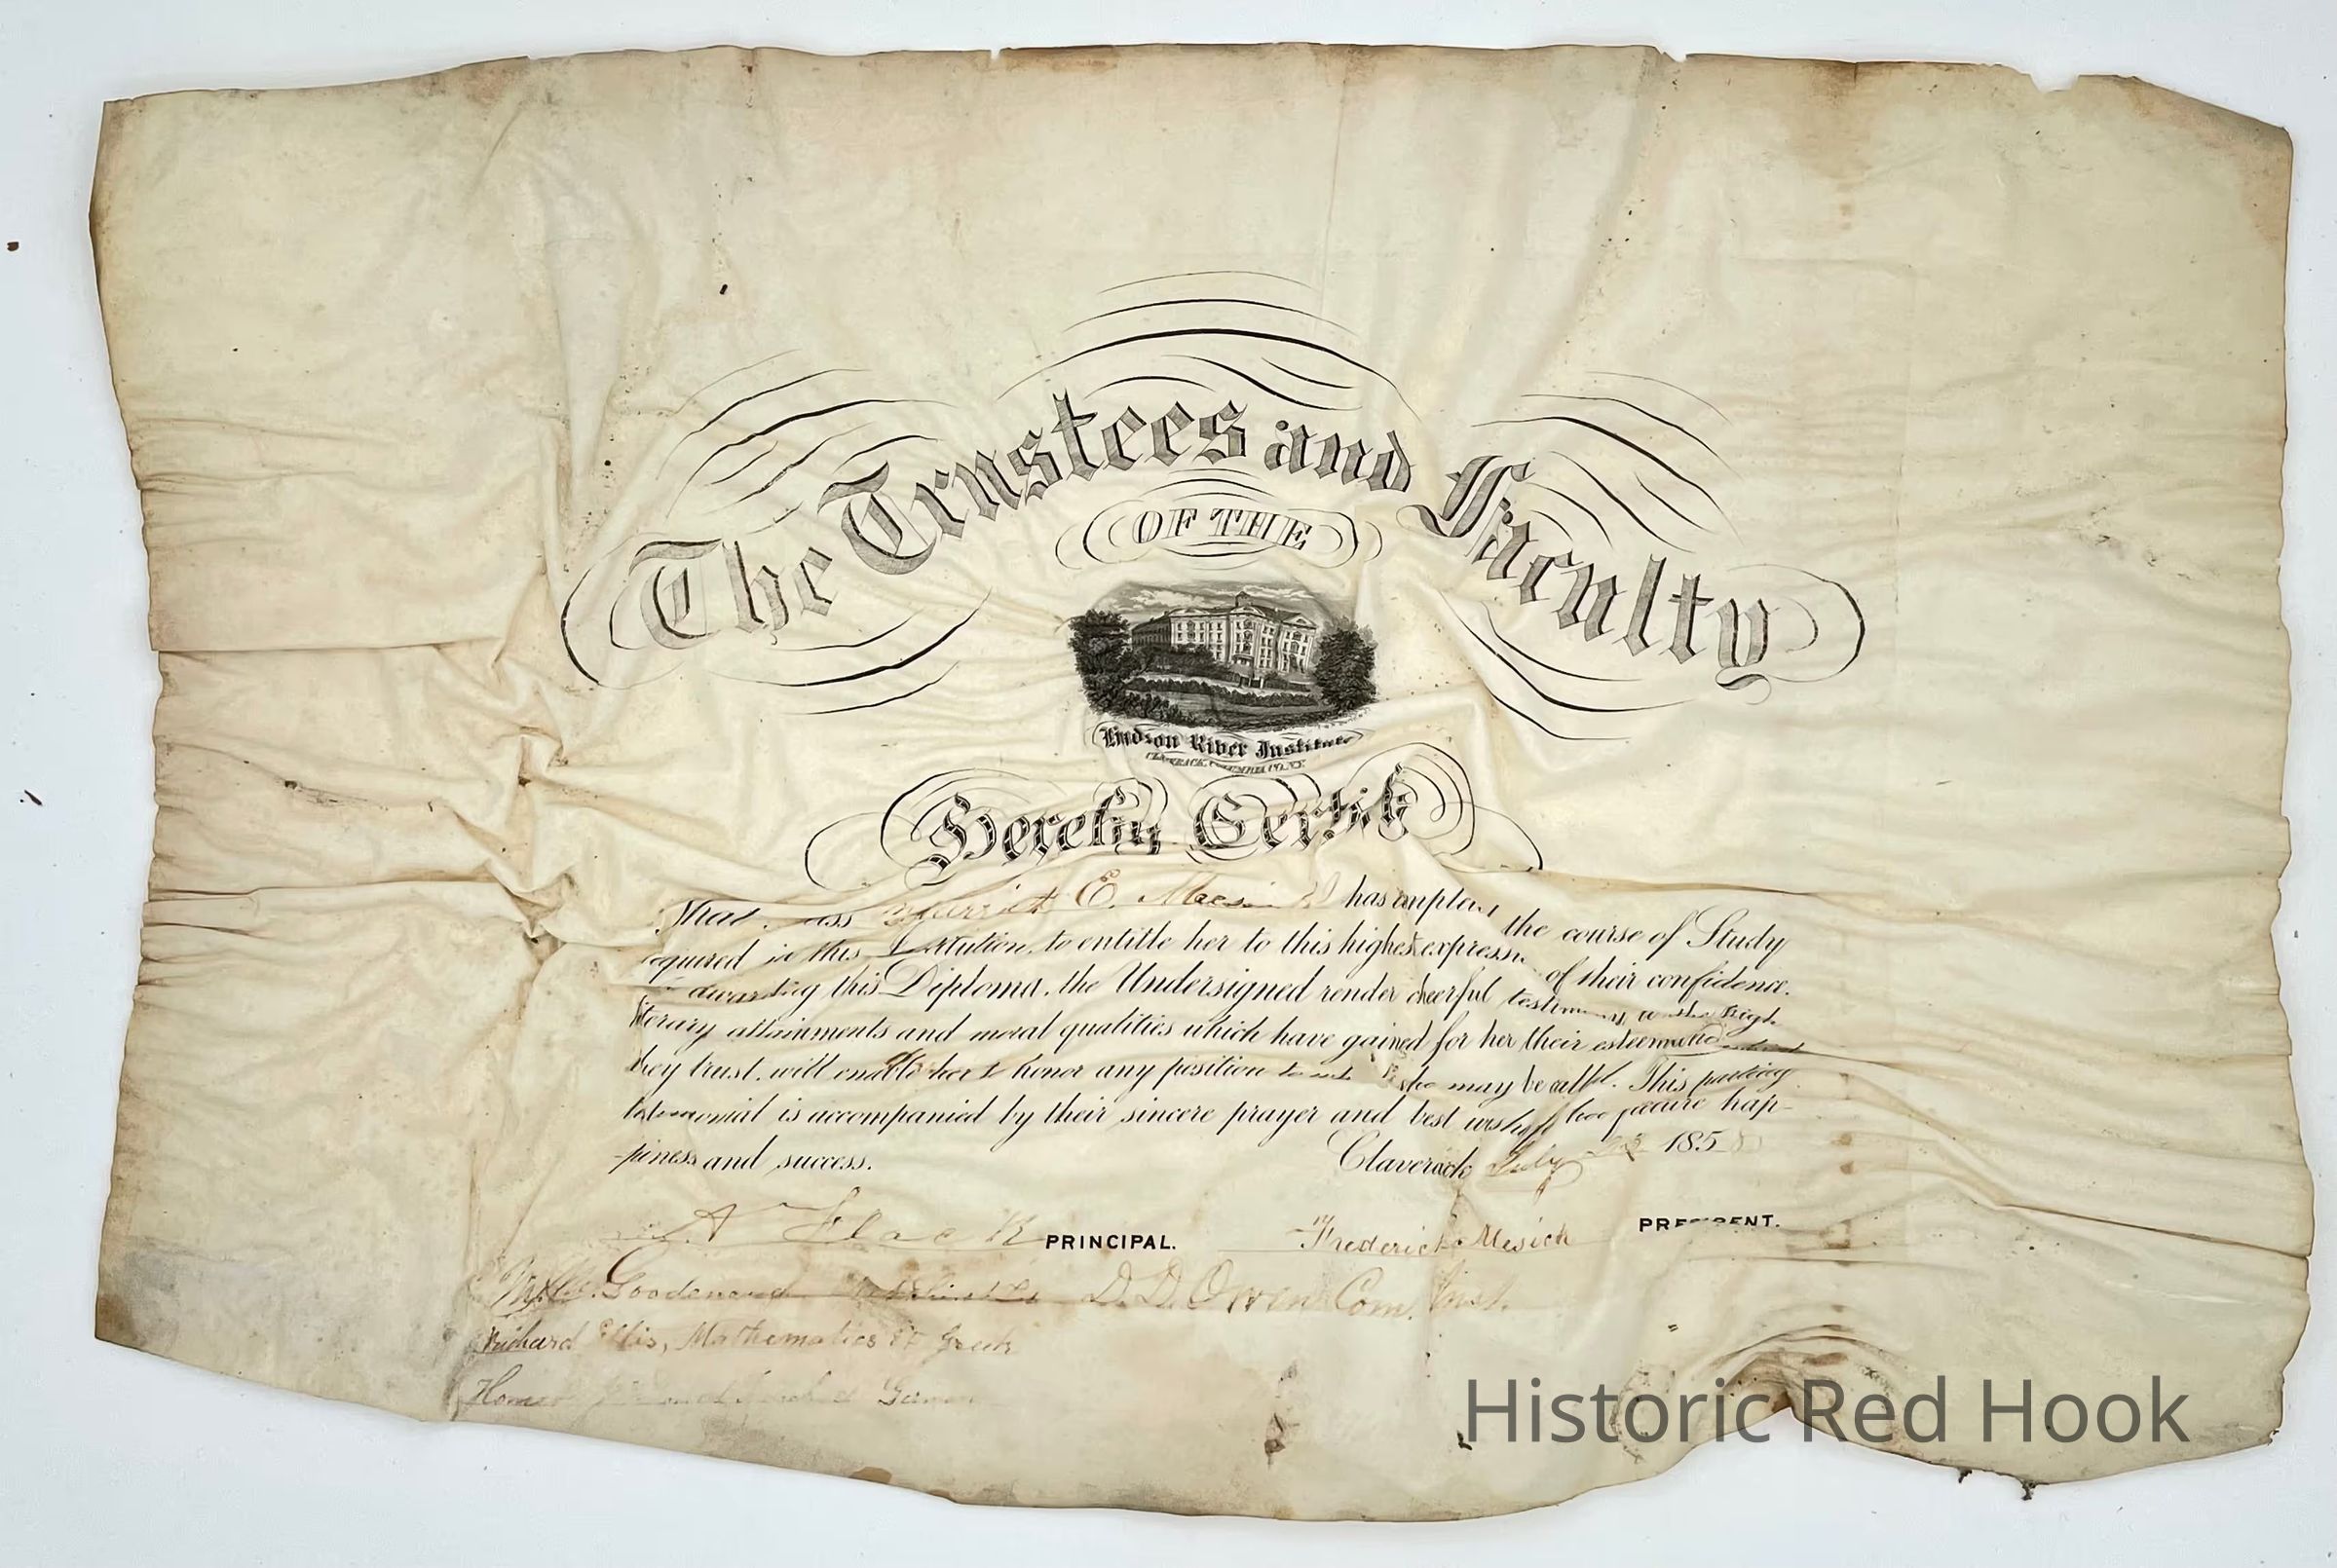 The Trustees and Faculty
OF THE
Hudson River Institute
CLAVERACK, COLUMBIA CO. N.Y.
Hereby Certify
That Miss Harriet E. has the course of Study
required in this Institution, to entitle her to this highest expression of their confidence.
awarding this Diploma, the Undersigned render cheerful testimony to the high
literary attainments and moral qualities which have gained for her their esteem and
they trust, will enable her to honor any position to she may be called. This parting
testimonial is accompanied by their sincere prayer and best wishes for future hap-
-piness and success.
Claverack July 185
A Flack PRINCIPAL.
Frederick Mesick PRESIDENT.
D. D. Owen Com. Inst.
Richard Ellis, Mathematics & Greek
Homer
Historic Red Hook